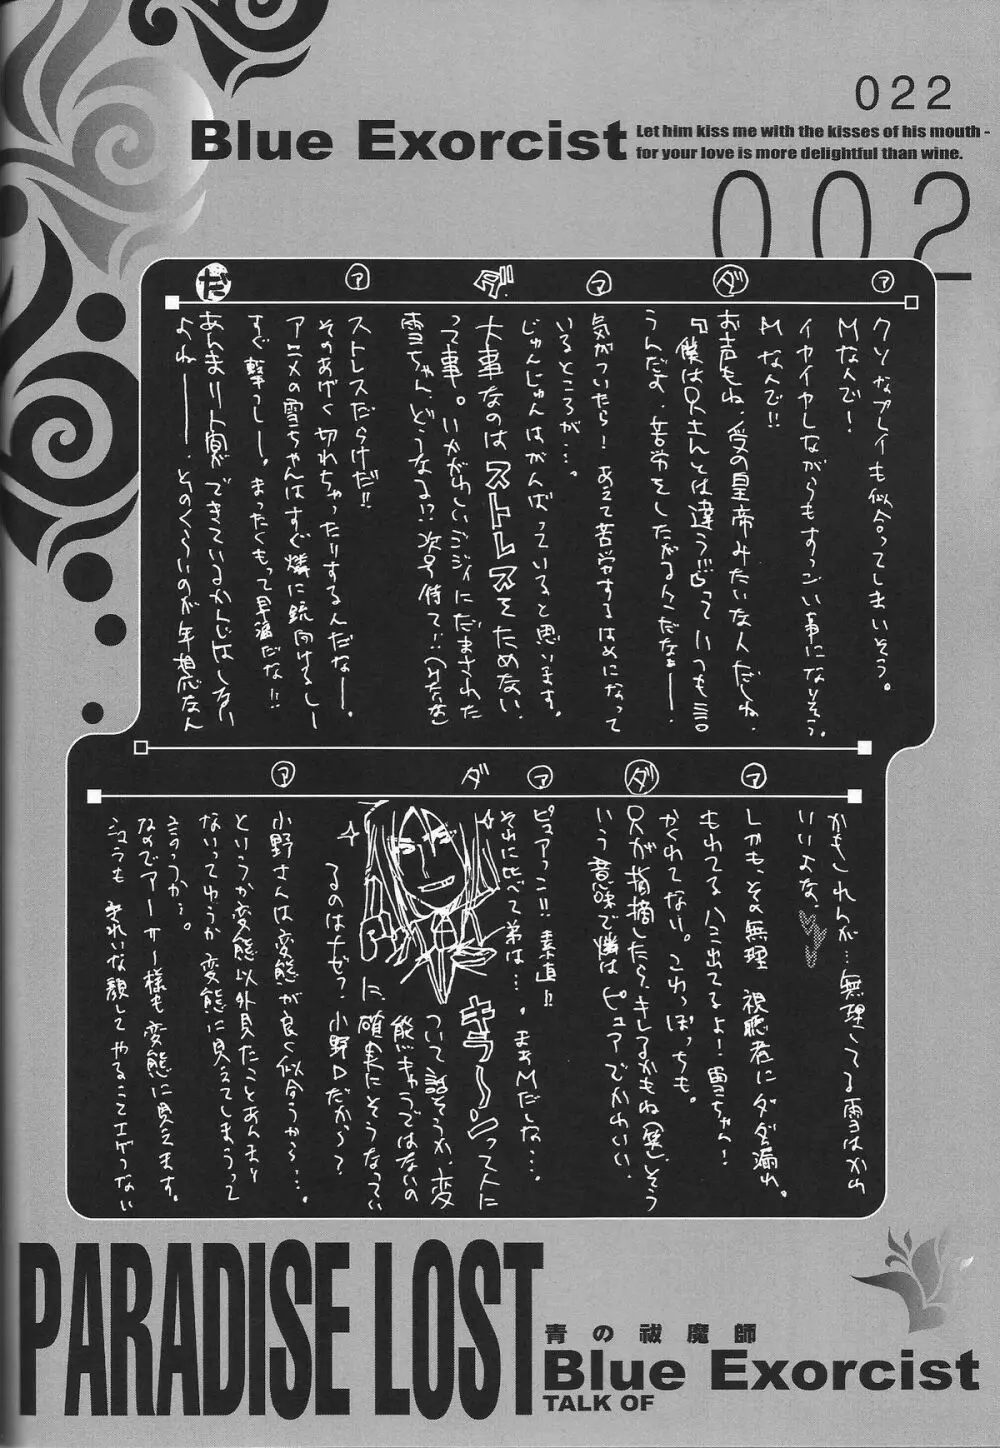 022
Blue Exorcist
Let him kiss me with the kisses of his mouth -
for your love is more delightful than wine.
002
ア
クソなプレイも似合ってしまいそう。
Mなんで!
イヤイヤしながらもすっごい事になりそう。
Mなんで!!
ダ
お声もね、受の皇帝みたいな人だしね、
『僕は兄さんとは違う!!』っていつも言
うんだよ、苦労をしたがる人だなぁー。
マ
気がついたら!あえて苦労するはめになって
いるところが…。
じゅんじゅんはがんばっていると思います。
ダ
大事なのはストレスをためない、
って事。いかがわしいジジイにだまされた
雪ちゃん、どうなる!?次号待て!!
ア
ストレスだらけだ!!
そのあげく切れちゃったりするんだなー。
アニメの雪ちゃんはすぐ燐に銃向けるしー
すぐ撃つしー。まったくもって早漏だな!!
だ
あんまり下寛ができているかんじはしない
よねー、そのくらいのが年相応なん
かもしれんが…無理してる雪はかわ
いいよな、
マ
しかも、その無理 視聴者にダダ漏れ。
もれてる ハミ出てるよ!雪ちゃん!
かくれてない。これっぽっちも。
ダ
兄が指摘したら、キレるかもね(笑)そう
いう意味で燐はピュアでかわいい
ア
ピュアっ!!素直!!
それに比べて弟は…。まぁMだしな…。
ダ
キラーンって人に
ついて話そうか、変
態キャラではないの
に、確実にそうなってい
るのはナゼ?小野Dだから〜?
ア
小野さんは変態が良く似合うから…。
というか変態以外見たことあんまり
ないってゆうか変態に見えてしまうって
ゆうか…。
なのでアーサー様も変態に見えます。
きれいな顔してやることエゲつない
PARADISE LOST
青の祓魔師
Blue Exorcist
TALK OF